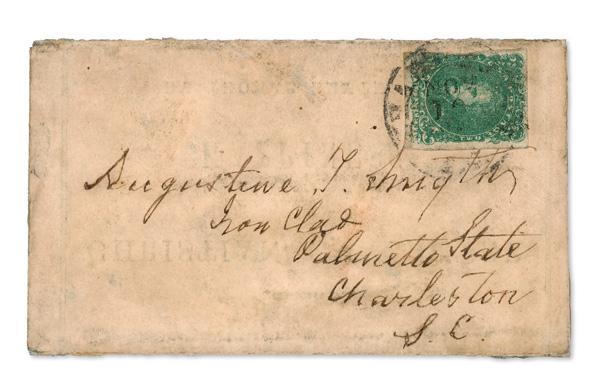 NOV
TWO
Augustine T. Smythe
Iron Clad
Palmetto State
Charleston
S. C.